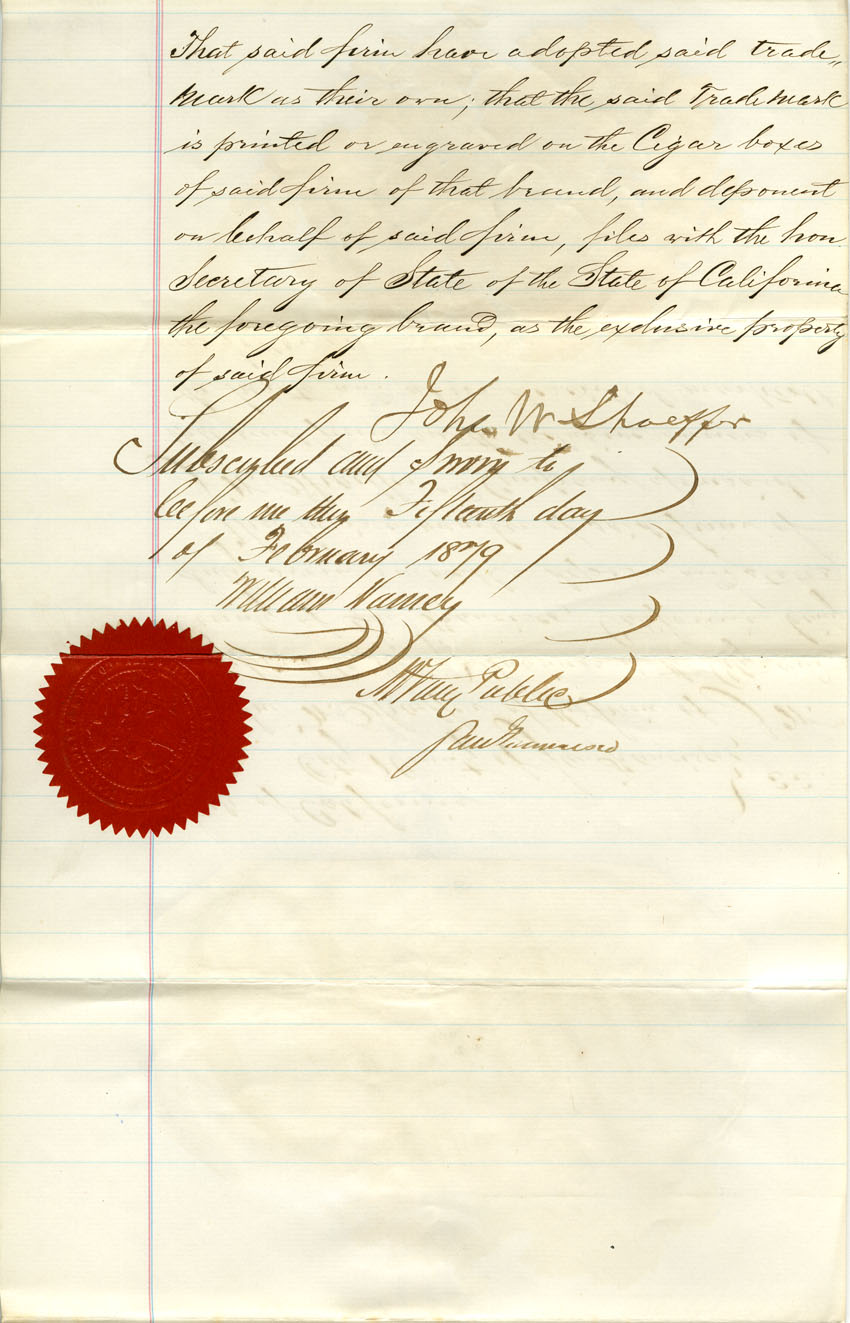 That said firm have adopted said trade„
mark as their own; that the said Trade mark
is printed or engraved on the Cigar boxes
of said firm of that brand, and deponent
on behalf of said firm, files with the hon
Secretary of State of the State of California
the foregoing brand, as the exclusive property
of said firm.
John W Shaeffer
Subscribed and Sworn to
before me this Fifteenth day
of February 1879
William Harney
Notary Public
San Francisco